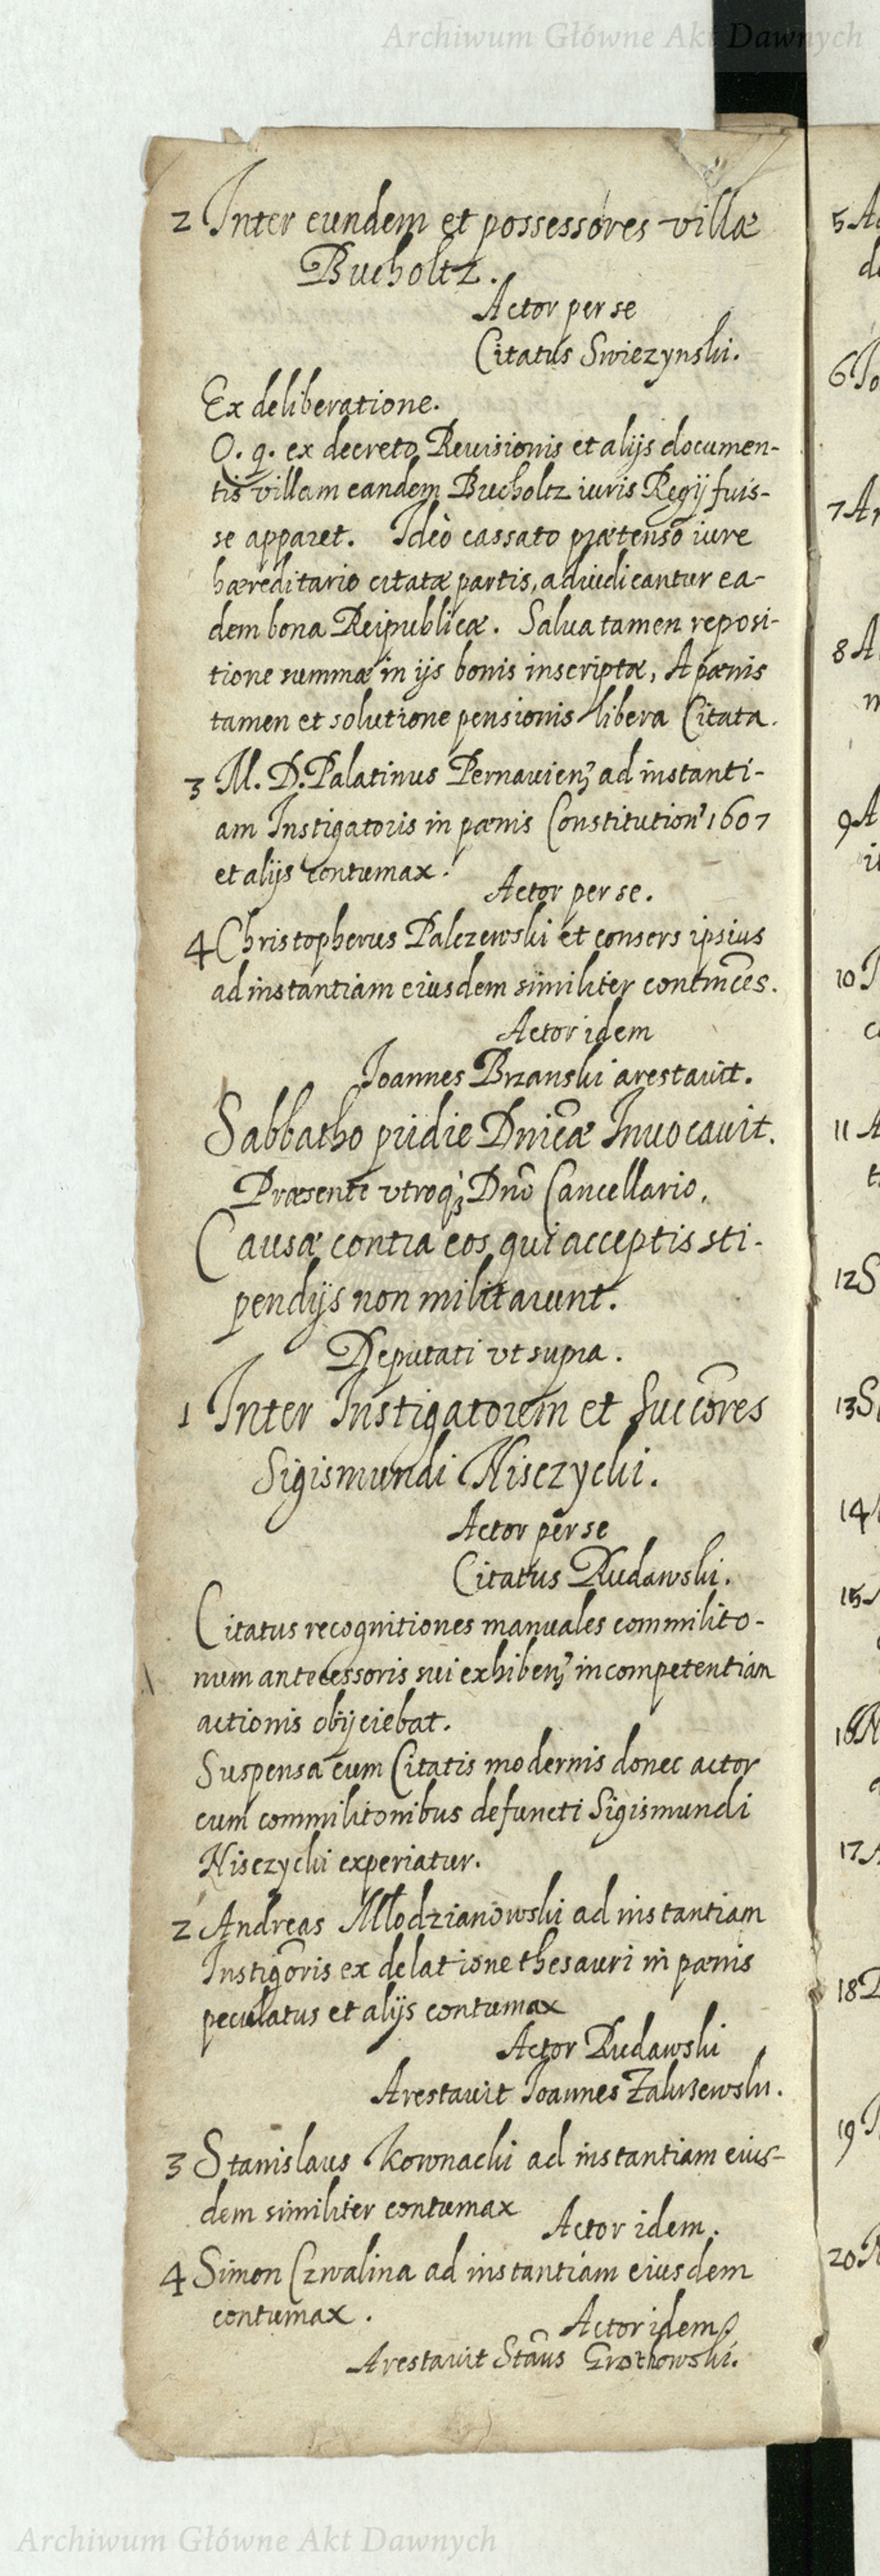 Archiwum Główne Akt Dawnych
2 Inter eundem et possessores villæ
Bucholtz.
Actor per se
Citatus Swiezynski.
Ex deliberatione.
O. q. ex decreto Reuisionis et alijs documen-
tis villam eandem Bucholtz iuris Regij fuis-
se apparet. Ideò cassato prætenso iure
hæreditario citatæ partis, adiudicantur ea-
dem bona Reipublicæ. Salua tamen reposi-
tione summæ in ijs bonis inscriptæ, A pœnis
tamen et solutione pensionis libera Citata.
3 M. D. Palatinus Pernauienz ad instanti-
am Instigatoris in pœnis Constitution' 1607
et alijs contumax.
Actor per se.
4 Christopherus Palczewski et consors ipsius
ad instantiam eiusdem similiter contmces.
Actor idem
Joannes Brzanski arestauit.
Sabbatho pridie Dnicæ Inuocauit.
Præsente vtroq; Dno Cancellario.
Causæ contra eos qui acceptis sti-
pendijs non militarunt.
Deputati vt supra.
1 Inter Instigatorem et Succores
Sigismundi Nisczycki.
Actor per se
Citatus Rudawski.
Citatus recognitiones manuales commilito-
num antecessoris sui exhibenz incompetentiam
actionis obijciebat.
Suspensa cum Citatis modernis donec actor
cum commilitonibus defuncti Sigismundi
Nisczycki experiatur.
2 Andreas Młodzianowski ad instantiam
Instigoris ex delatione thesauri in pœnis
peculatus et alijs contumax
Actor Rudawski
Arestauit Joannes Zaluzewski.
3 Stanislaus Kownacki ad instantiam eius-
dem similiter contumax
Actor idem.
4 Simon Czwalina ad instantiam eiusdem
contumax.
Actor idem
Arestauit Staus Grothowski.
5 A
d
6 Jo
7 Ar
8 A
m
9 A
i
10
c
11 A
t
12 S
13 S
14
15
16
17
18
19
20
Archiwum Główne Akt Dawnych